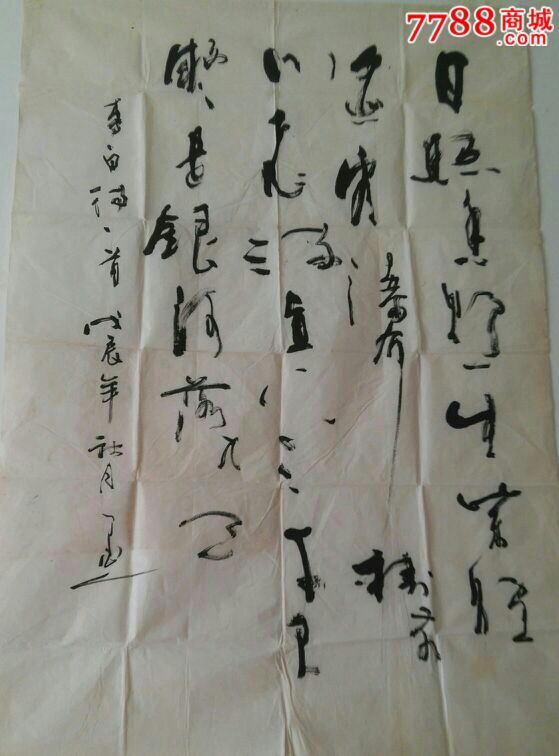 7788商城
.com
日照香炉生紫烟
遥看瀑布挂前
川飞流直下三千尺
疑是銀河落九天
李白诗一首 戊辰年 秋月